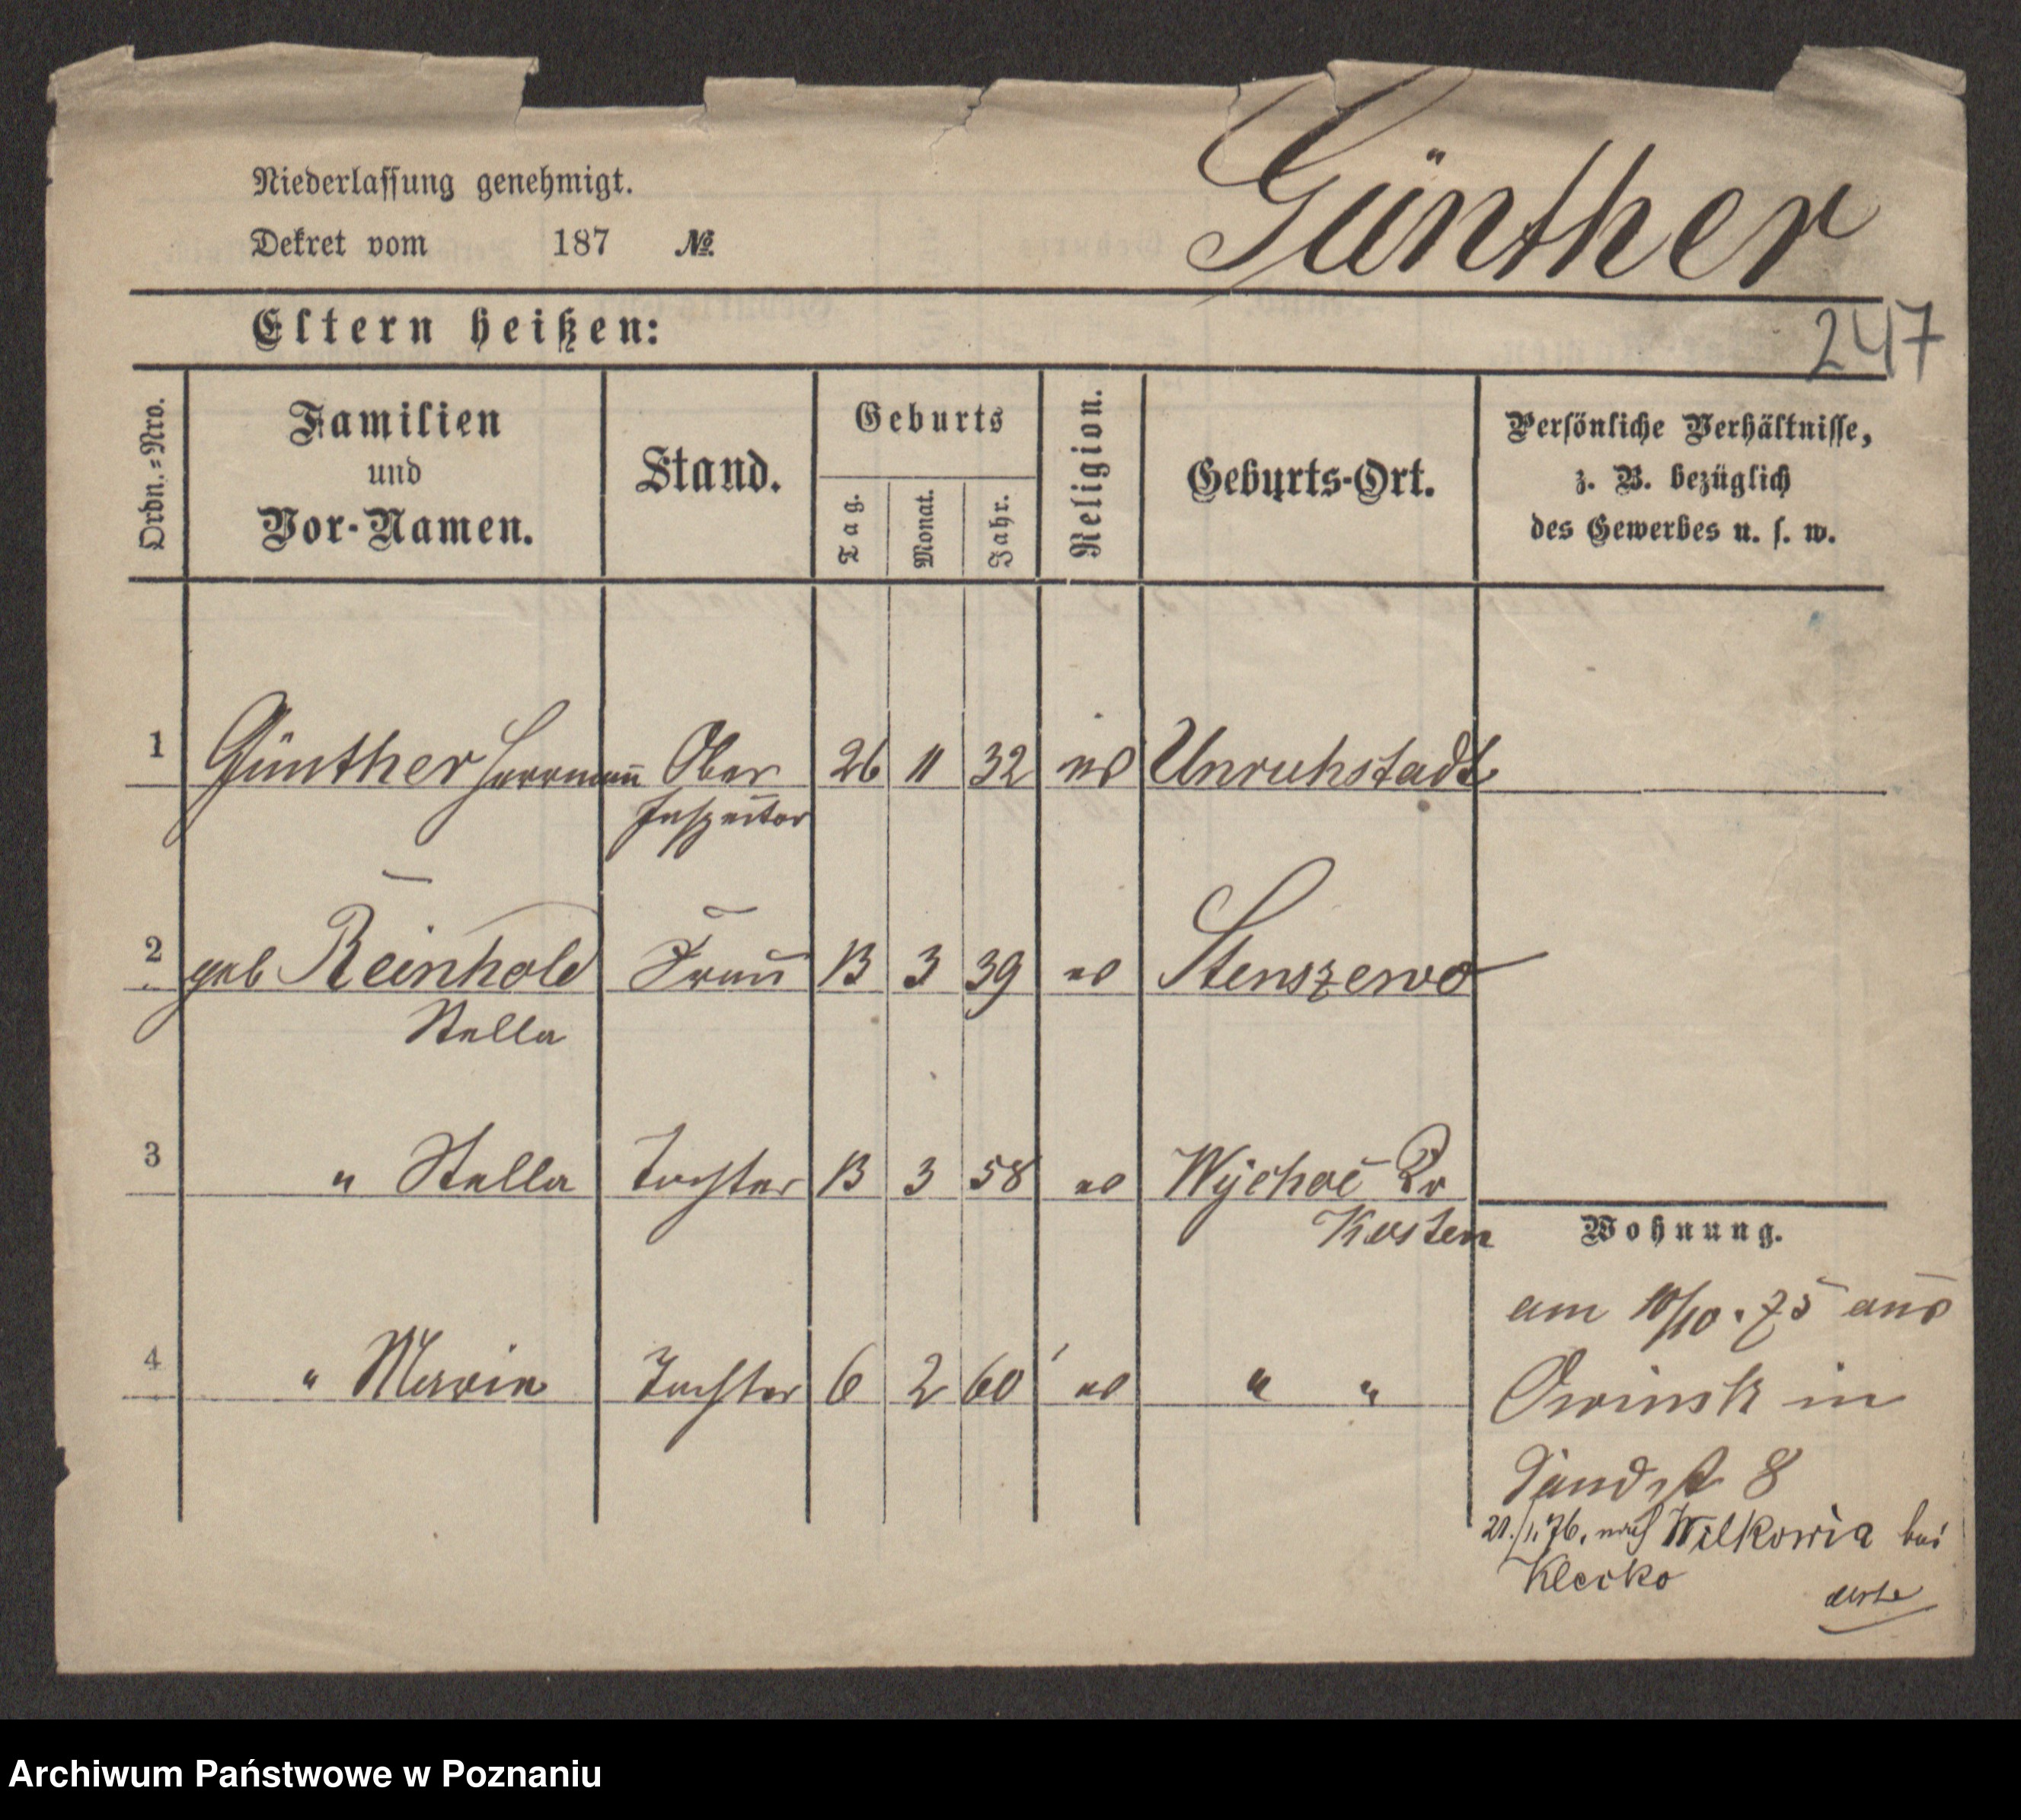 Niederlassung genehmigt.
Dekret vom 187 №
Günther
Eltern heißen:
247
Ordn.=Nro.
Familien
und
Vor-Namen.
Stand.
Geburts
Tag.
Monat.
Jahr.
Religion.
Geburts-Ort.
Persönliche Verhältnisse,
z. B. bezüglich
des Gewerbes u. s. w.
1 Günther Herrmann Ober 26 11 32 ev Unruhstadt
Inspector
2 geb Reinhold Frau 13 3 39 ev Stenszewo
Stella
3 " Stella Tochter 13 3 58 ev Wychoc Kr
Kosten
Wohnung.
4 " Maria Tochter 6 2 60 ev " "
am 10/10. 75 aus
Owinsk in
Sandst 8
21./1. 76. nach Wilkowia bei
Klecko